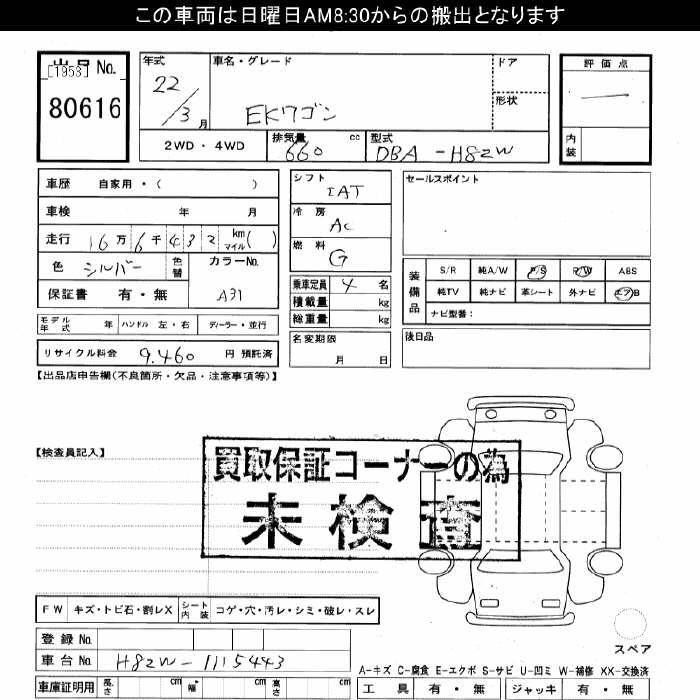 この車両は日曜日AM8:30からの搬出となります
出品 No.
[1953]
80616
年式
22/3月
車名・グレード
EKワゴン
ドア
形状
評価点
—
内装
2WD・4WD
排気量 660 cc
型式 DBA-H82W
車歴 自家用・( )
車検 年 月
走行 16万6千432 km マイル ( )
色 シルバー 色替
カラーNo.
A31
保証書 有・無
モデル年式 年 ハンドル 左・右 ディーラー・並行
リサイクル料金 9.460 円 預託済
シフト
IAT
冷房
AC
燃料
G
乗車定員 4 名
積載量 kg
総重量 kg
名変期限
月 日
セールスポイント
装備品
S/R 純A/W P/S P/W ABS
純TV 純ナビ 革シート 外ナビ エアB
ナビ型番:
後日品
【出品店申告欄(不良箇所・欠品・注意事項等)】
【検査員記入】
買取保証コーナーの為
未検査
FW キズ・トビ石・割レX シート内装 コゲ・穴・汚レ・シミ・破レ・スレ
登録 No.
車台 No. H82W-1115443
車庫証明用 長さ cm 幅 cm 高さ cm
スペア
A-キズ C-腐食 E-エクボ S-サビ U-凹ミ W-補修 XX-交換済
工具 有・無 ジャッキ 有・無